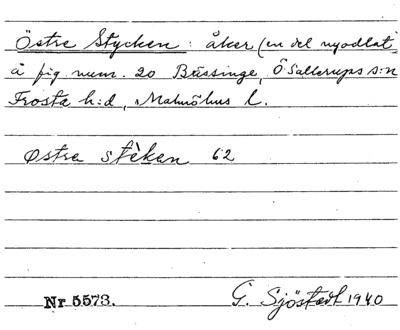 Östre Stycken: åker (en del nyodlat
å fig. num. 20 Bässinge, Ö Sallerups s:n
Frosta h:d, Malmöhus l.
østra stèkan 62
Nr 5573. G. Sjöstedt 1940